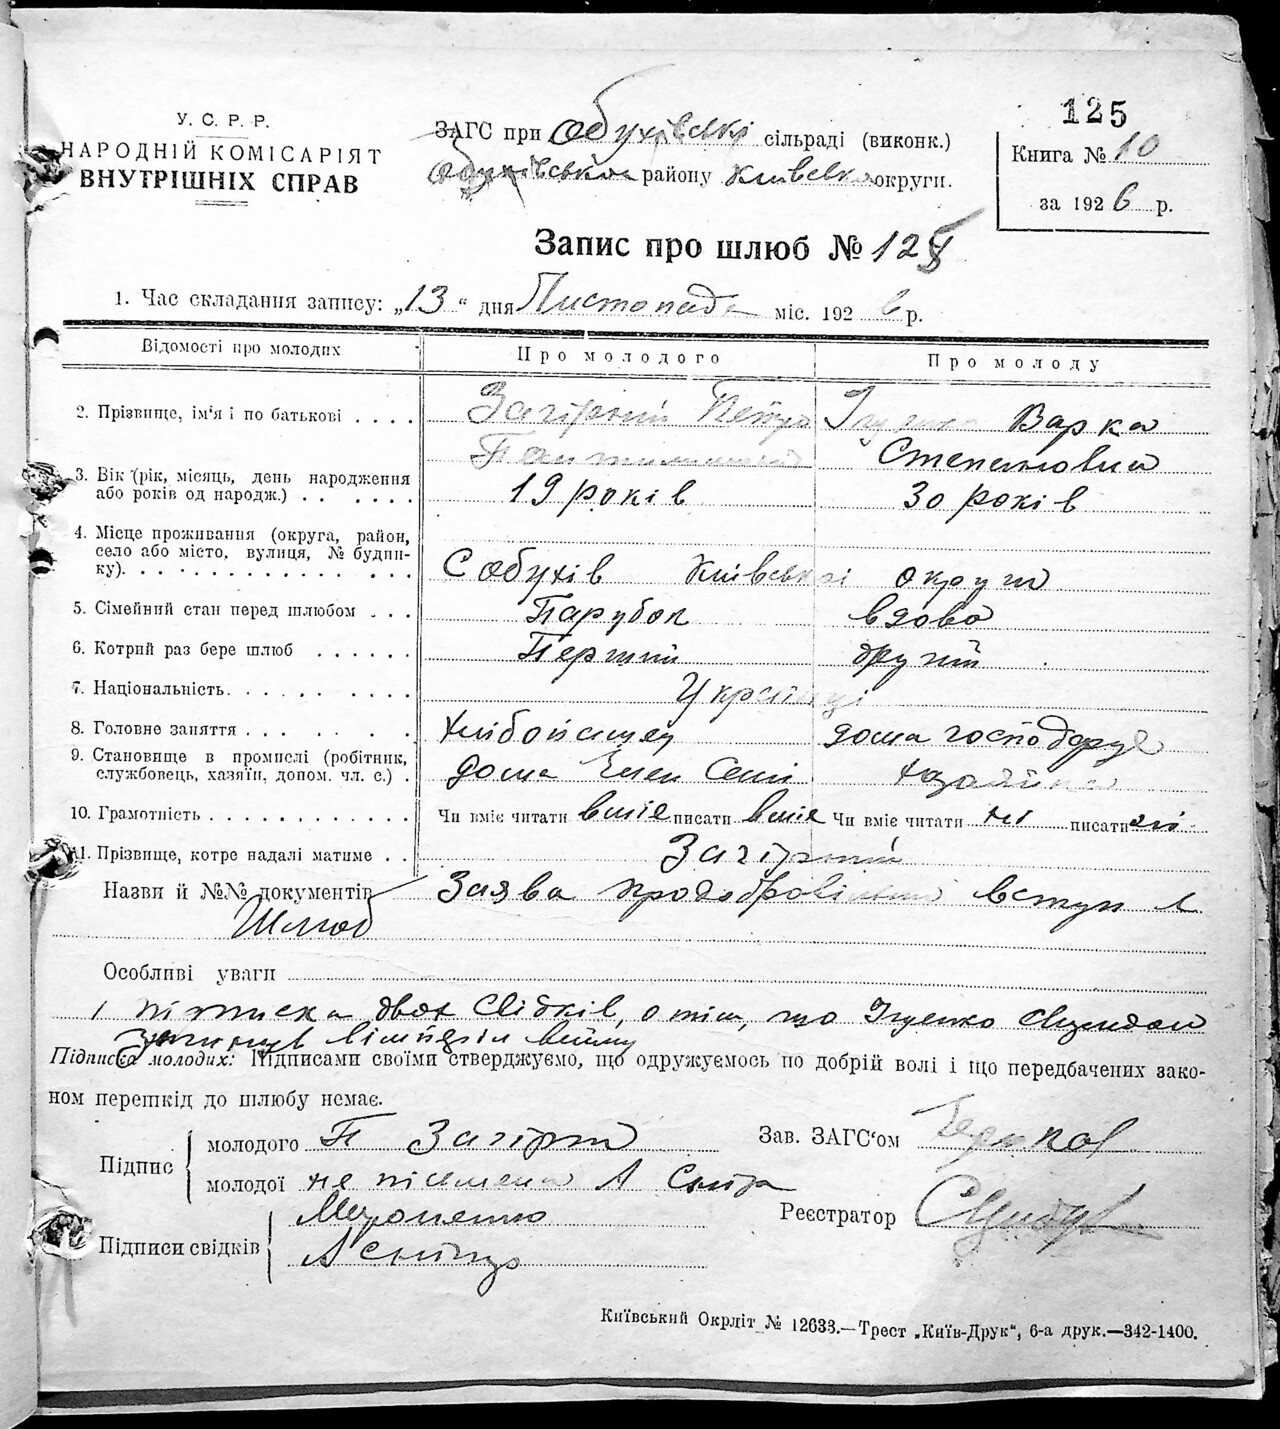 125
У. С. Р. Р.
НАРОДНІЙ КОМІСАРІЯТ
ВНУТРІШНІХ СПРАВ
ЗАГС при Обухівські сільраді (виконк.)
Обухівського району Київської округи.
Книга № 10
за 1926 р.
Запис про шлюб № 125
1. Час складання запису: „13“ дня Листопада міс. 1926 р.
Відомості про молодих Про молодого Про молоду
2. Прізвище, ім'я і по батькові . . . . Загірний Петро Іщенко Варка
Степановна
3. Вік (рік, місяць, день народження
або років од народж.) . . . . . . 19 років 30 років
4. Місце проживання (округа, район,
село або місто, вулиця, № будин-
ку). . . . . . . . . . . . . . . . С Обухів Київські округи
5. Сімейний стан перед шлюбом . . . Парубок вдова
6. Котрий раз бере шлюб . . . . . . Перший другій
7. Національність. . . . . . . . . . Українці
8. Головне заняття . . . . . . . . . хлібопашец дома господарує
9. Становище в промислі (робітник,
службовець, хазяїн, допом. чл. с.) . дома Член Семі хозяйка
10. Грамотність . . . . . . . . . . . . Чи вміє читати вміє писати вміє Чи вміє читати ні писати ні
11. Прізвище, котре надалі матиме . . Загірний
Назви й №№ документів Заява продобровільний вступ в
Шлюб
Особливі уваги
1 підписка двох свідків, о тім, що Іщенко
загинув війну
Підписка молодих: Підписами своїми стверджуємо, що одружуємось по добрій волі і що передбачених зако-
ном перешкід до шлюбу немає.
Підпис
молодого П Загірний
молодої не писмена А
Зав. ЗАГС'ом
Реєстратор
Підписи свідків
Мироненко
А
Київський Окрліт № 12633.—Трест „Київ-Друк“, 6-а друк.—342-1400.